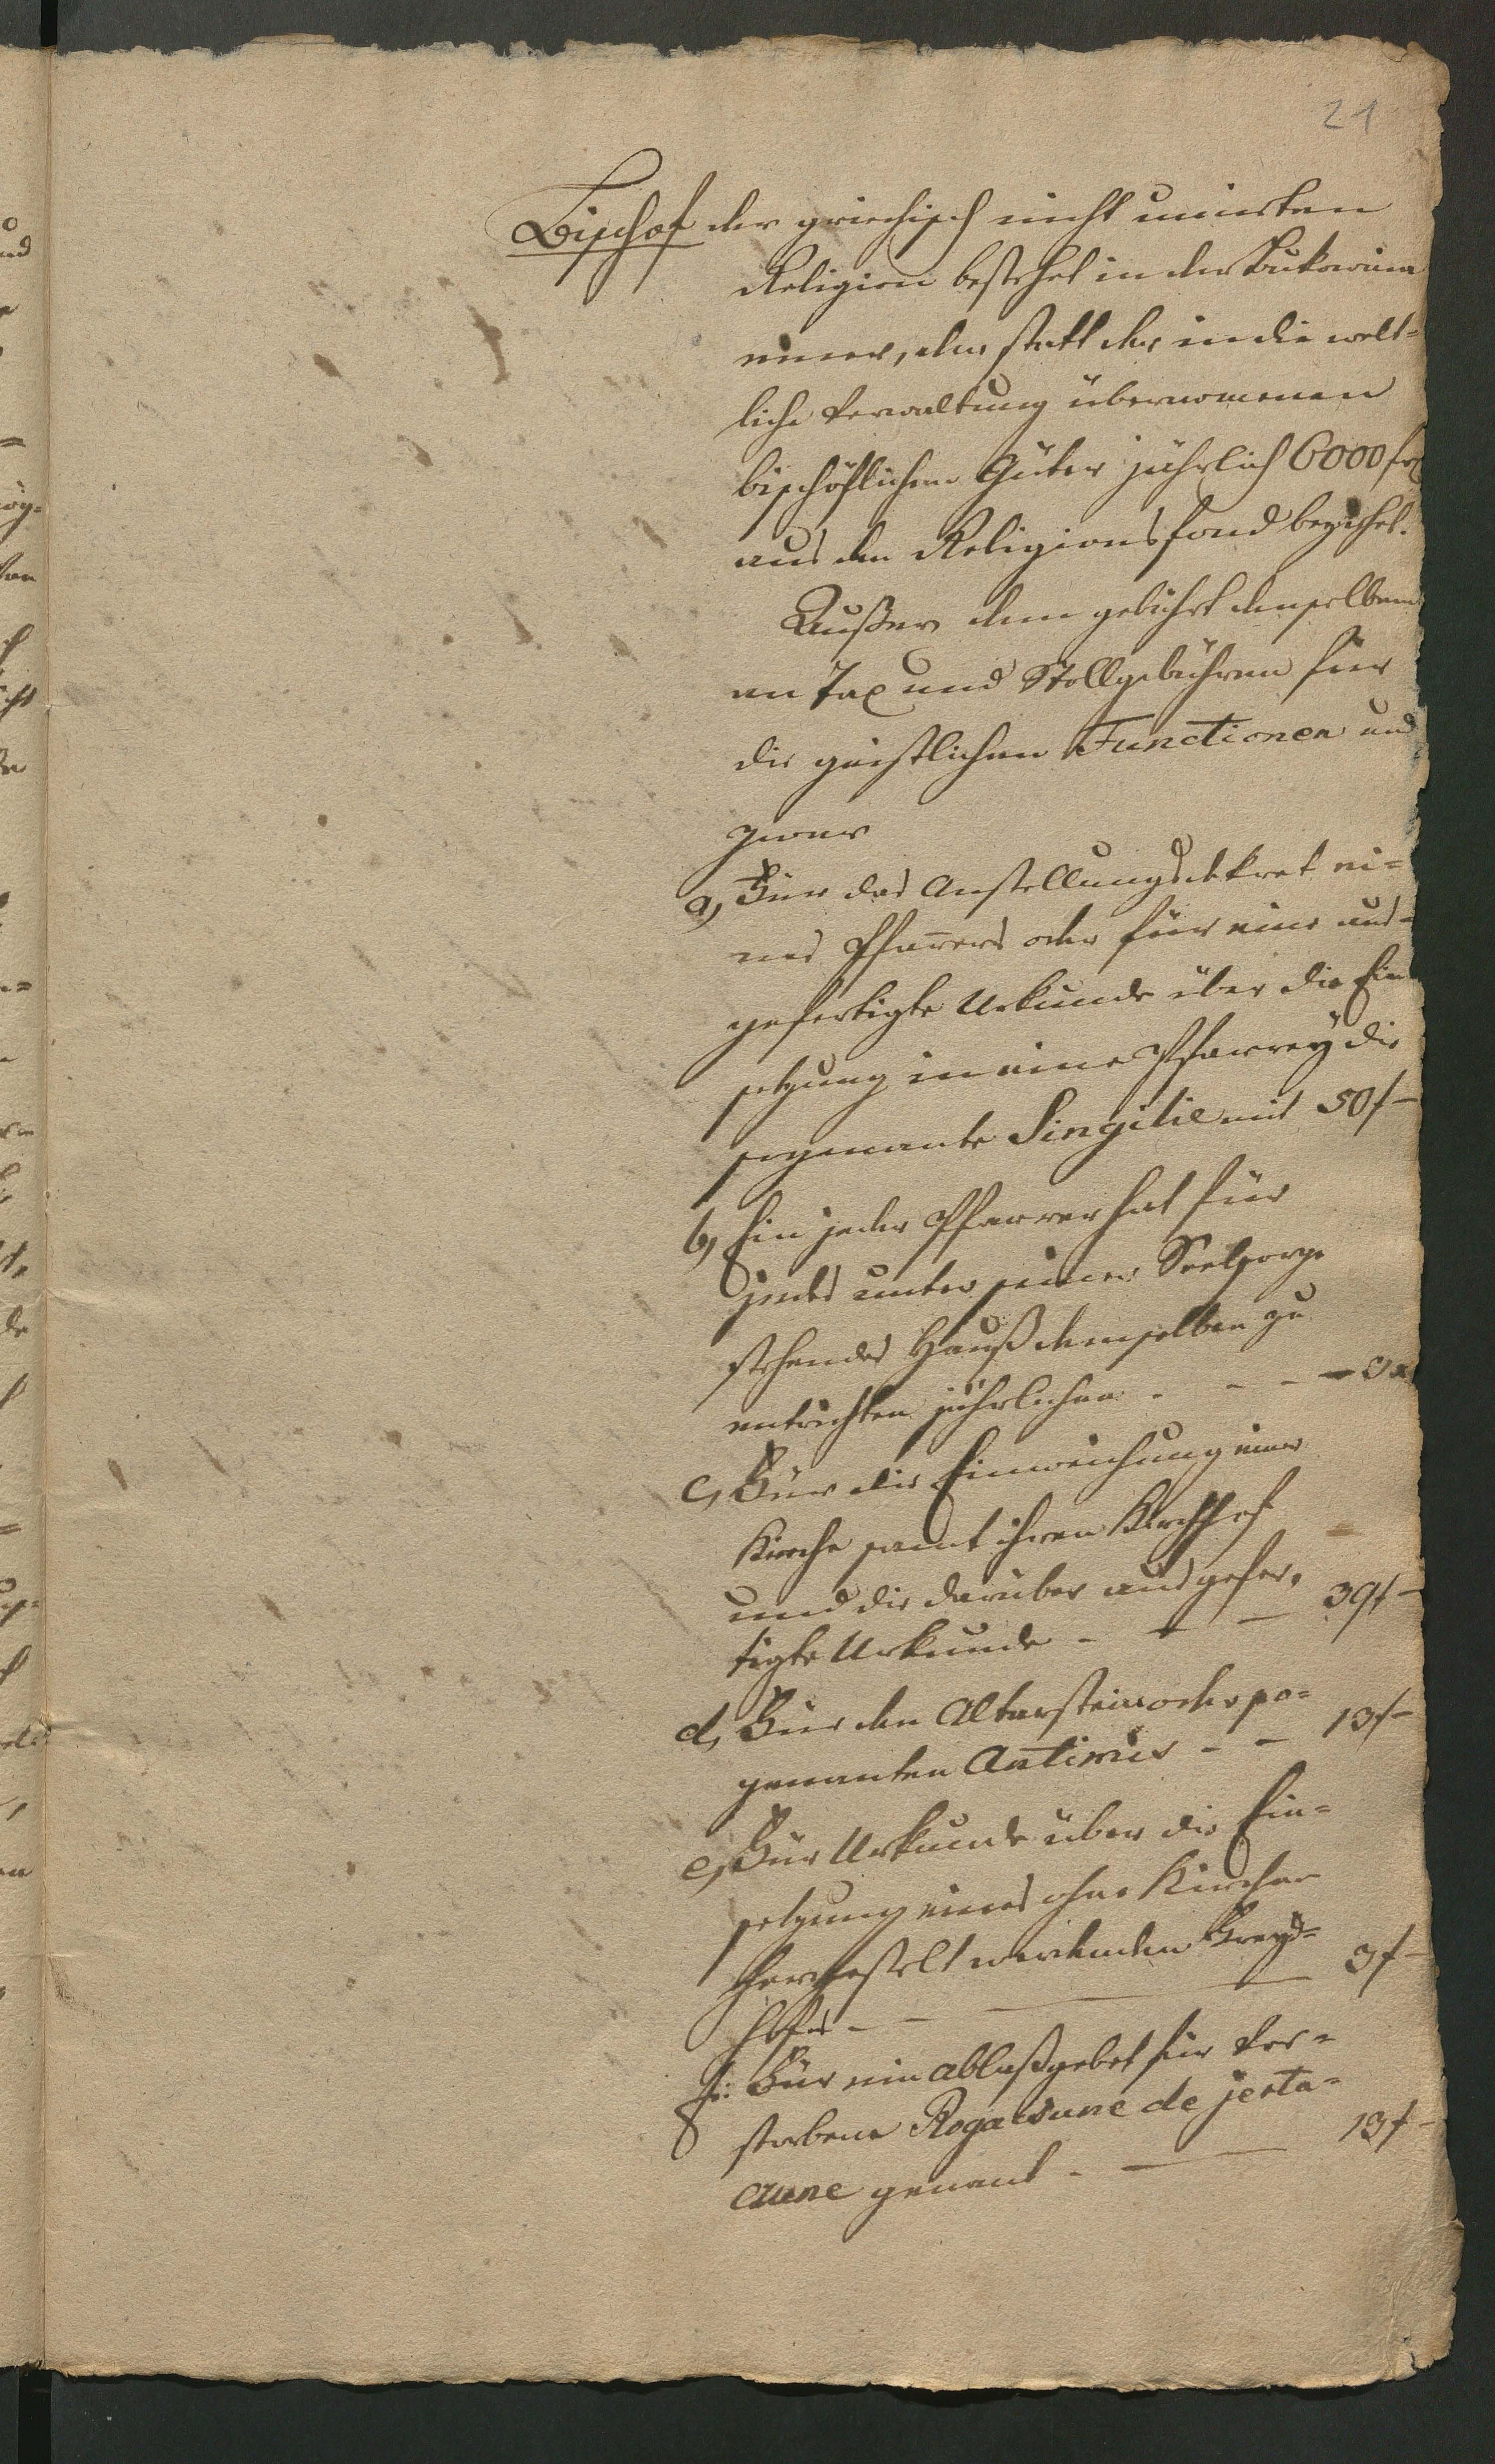 21
Bischof der griechisch nicht unirten
Religion bestehet in der Bukowina
einer, der statt der in die welt-
liche Verwaltung übernomenen
bischöflichen Güter jährlich 6000 fr
aus den Religionsfond beziehet.
Außer dem gebührt demselben
an Tax und Stollgebühren für
die geistlichen Functionen und
zwar
a, Für das Anstellungsdekret ei-
nes Pfarrers oder für eine aus-
gefertigte Urkunde über die Ein
setzung in eine Pfarrey die
sogenante Singilie mit 50 f –
b, Ein jeder Pfarrer hat für
jedes unter seiner Seelsorge
stehendes Hauß demselben zu
entrichten jährlichen - - - - 3 x
c, Für die Einweichung einer
Kirche samt ihren Kirchhof
und die darüber ausgefer,
tigte Urkunde - - - 39 f –
d, Für den Altarstein oder so-
genanten Antimis - - 13 f –
e, Für Urkunde über die Ein-
setzung eines ohne Kirchen
hergestelt werdenden Freyd-
hofes - - 3 f –
f: Für ein Ablaßgebet für Ver-
storbene Rogatsune de jerta-
cune genant - 13 f –